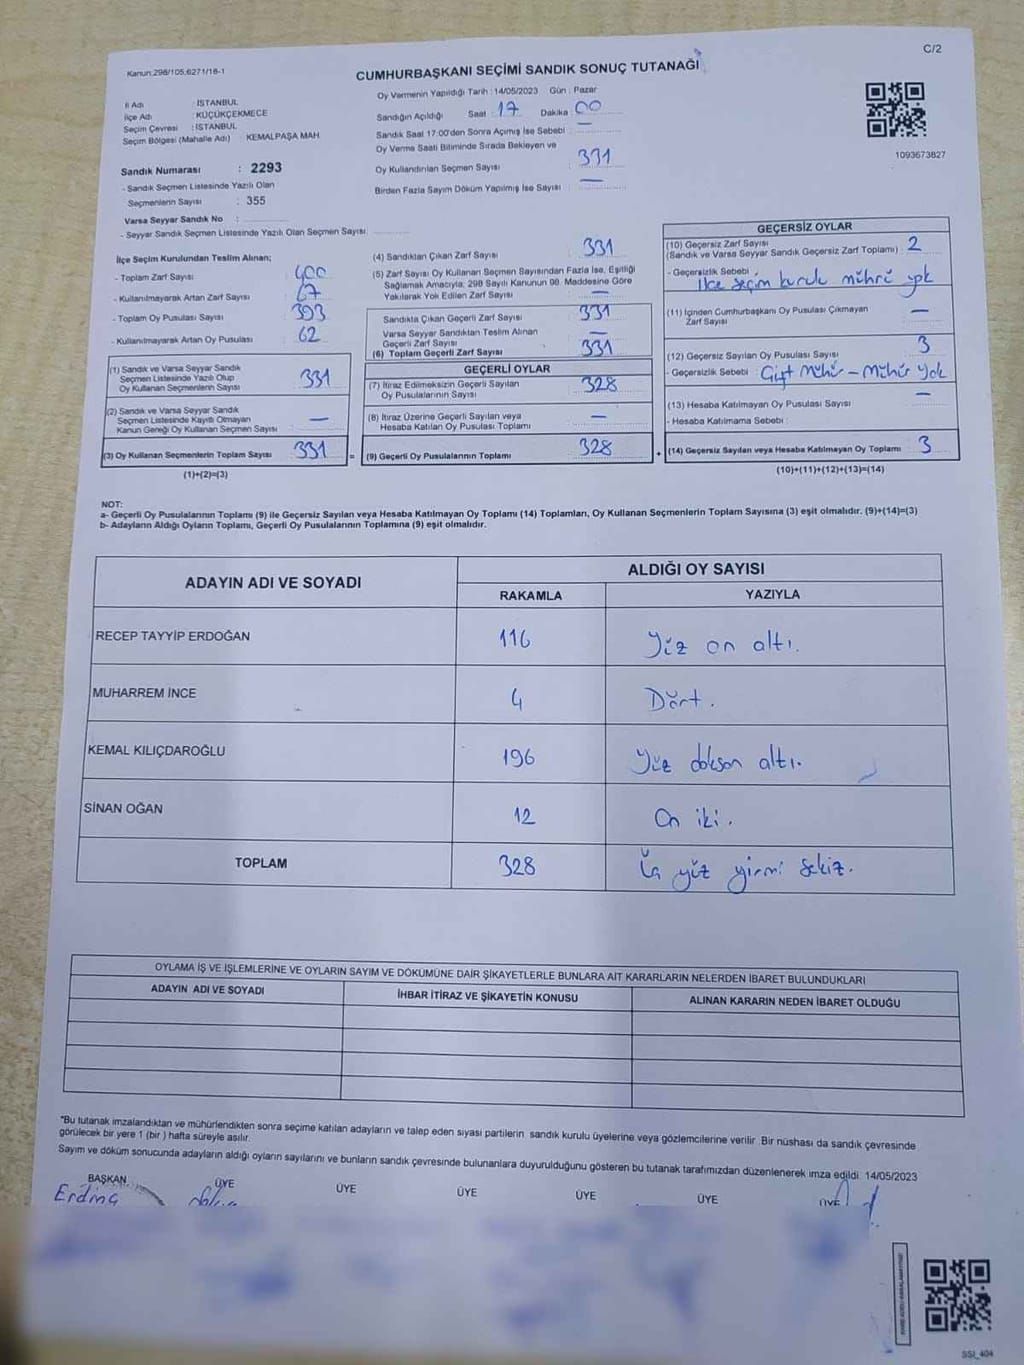 C/2
Kanun:298/105,6271/18-1
CUMHURBAŞKANI SEÇİMİ SANDIK SONUÇ TUTANAĞI
İl Adı : İSTANBUL
İlçe Adı : KÜÇÜKÇEKMECE
Seçim Çevresi : İSTANBUL
Seçim Bölgesi (Mahalle Adı) KEMALPAŞA MAH.
Sandık Numarası : 2293
- Sandık Seçmen Listesinde Yazılı Olan
Seçmenlerin Sayısı : 355
Varsa Seyyar Sandık No :
- Seyyar Sandık Seçmen Listesinde Yazılı Olan Seçmen Sayısı:
Oy Vermenin Yapıldığı Tarih : 14/05/2023 Gün : Pazar
Sandığın Açıldığı Saat : 17 Dakika : 00
Sandık Saat 17:00'den Sonra Açımış İse Sebebi : —
Oy Verme Saati Bitiminde Sırada Bekleyen ve
Oy Kullandırılan Seçmen Sayısı : 331
Birden Fazla Sayım Döküm Yapılmış İse Sayısı : —
1093673827
İlçe Seçim Kurulundan Teslim Alınan;
- Toplam Zarf Sayısı : 400
- Kullanılmayarak Artan Zarf Sayısı : 67
- Toplam Oy Pusulası Sayısı : 393
- Kullanılmayarak Artan Oy Pusulası : 62
(1) Sandık ve Varsa Seyyar Sandık
Seçmen Listesinde Yazılı Olup
Oy Kullanan Seçmenlerin Sayısı : 331
(2) Sandık ve Varsa Seyyar Sandık
Seçmen Listesinde Kayıtlı Olmayan
Kanun Gereği Oy Kullanan Seçmen Sayısı : —
(3) Oy Kullanan Seçmenlerin Toplam Sayısı : 331 =
(1)+(2)=(3)
(4) Sandıktan Çıkan Zarf Sayısı : 331
(5) Zarf Sayısı Oy Kullanan Seçmen Sayısından Fazla İse, Eşitliği
Sağlamak Amacıyla, 298 Sayılı Kanunun 98. Maddesine Göre
Yakılarak Yok Edilen Zarf Sayısı : —
Sandıkta Çıkan Geçerli Zarf Sayısı : 331
Varsa Seyyar Sandıktan Teslim Alınan
Geçerli Zarf Sayısı : —
(6) Toplam Geçerli Zarf Sayısı : 331
GEÇERLİ OYLAR
(7) İtiraz Edilmeksizin Geçerli Sayılan
Oy Pusulalarının Sayısı : 328
(8) İtiraz Üzerine Geçerli Sayılan veya
Hesaba Katılan Oy Pusulası Toplamı : —
(9) Geçerli Oy Pusulalarının Toplamı : 328 +
GEÇERSİZ OYLAR
(10) Geçersiz Zarf Sayısı
(Sandık ve Varsa Seyyar Sandık Geçersiz Zarf Toplamı) : 2
- Geçersizlik Sebebi : İlçe seçim kurulu mührü yok
(11) İçinden Cumhurbaşkanı Oy Pusulası Çıkmayan
Zarf Sayısı : —
(12) Geçersiz Sayılan Oy Pusulası Sayısı : 3
- Geçersizlik Sebebi : Çift Mühür - Mühür Yok
(13) Hesaba Katılmayan Oy Pusulası Sayısı : —
- Hesaba Katılmama Sebebi :
(14) Geçersiz Sayılan veya Hesaba Katılmayan Oy Toplamı : 3
(10)+(11)+(12)+(13)=(14)
NOT:
a- Geçerli Oy Pusulalarının Toplamı (9) ile Geçersiz Sayılan veya Hesaba Katılmayan Oy Toplamı (14) Toplamları, Oy Kullanan Seçmenlerin Toplam Sayısına (3) eşit olmalıdır. (9)+(14)=(3)
b- Adayların Aldığı Oyların Toplamı, Geçerli Oy Pusulalarının Toplamına (9) eşit olmalıdır.
ADAYIN ADI VE SOYADI ALDIĞI OY SAYISI
RAKAMLA YAZIYLA
RECEP TAYYİP ERDOĞAN 116 Yüz on altı.
MUHARREM İNCE 4 Dört.
KEMAL KILIÇDAROĞLU 196 Yüz doksan altı.
SİNAN OĞAN 12 On iki.
TOPLAM 328 Üç yüz yirmi sekiz.
OYLAMA İŞ VE İŞLEMLERİNE VE OYLARIN SAYIM VE DÖKÜMÜNE DAİR ŞİKAYETLERLE BUNLARA AİT KARARLARIN NELERDEN İBARET BULUNDUKLARI
ADAYIN ADI VE SOYADI İHBAR İTİRAZ VE ŞİKAYETİN KONUSU ALINAN KARARIN NEDEN İBARET OLDUĞU
*Bu tutanak imzalandıktan ve mühürlendikten sonra seçime katılan adayların ve talep eden siyasi partilerin sandık kurulu üyelerine veya gözlemcilerine verilir. Bir nüshası da sandık çevresinde
görülecek bir yere 1 (bir ) hafta süreyle asılır.
Sayım ve döküm sonucunda adayların aldığı oyların sayılarını ve bunların sandık çevresinde bulunanlara duyurulduğunu gösteren bu tutanak tarafımızdan düzenlenerek imza edildi. 14/05/2023
BAŞKAN ÜYE ÜYE ÜYE ÜYE ÜYE ÜYE
Erdinç
SSI_404